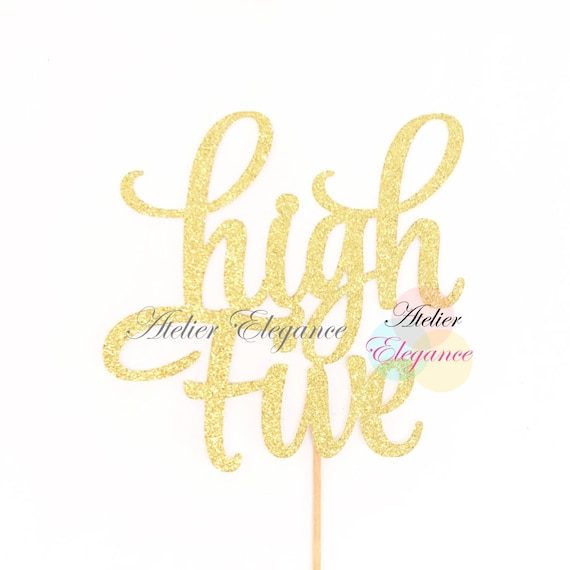 high
five
Atelier Elegance
Atelier
Elegance